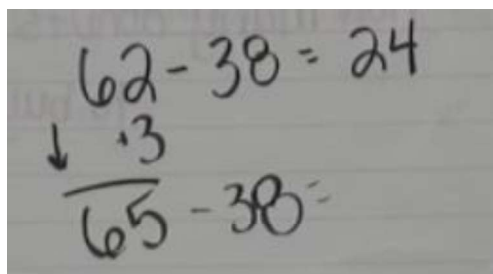 62 - 38 = 24
↓ +3
65 - 38 =